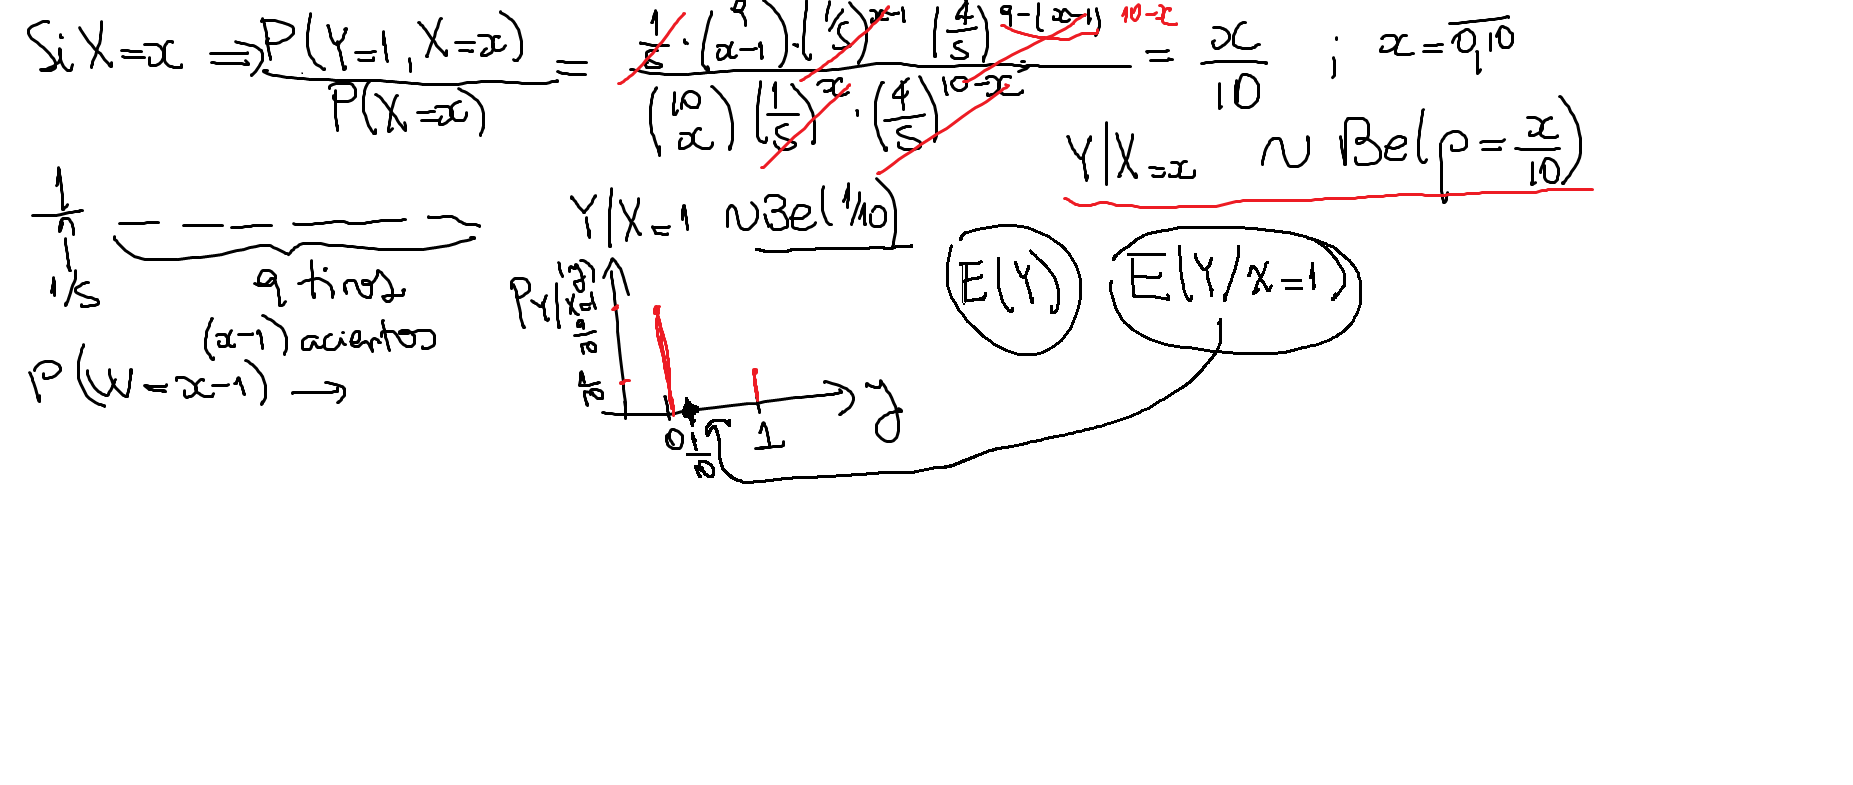 Si X=x ⇒ P(Y=1, X=x) / P(X=x) = 1/5 · (9 x-1) · (1/5)^x-1 (4/5)^9-(x-1) 10-x / (10 x) (1/5)^x · (4/5)^10-x = x/10 ; x=0,10
Y|X=x ~ Be(p=x/10)
1
1/5
9 tiros
(x-1) aciertos
P(W=x-1) →
Y/X=1 ~ Be(1/10)
E(Y) E(Y/X=1)
9/10
1/10
0 1/10 1 y